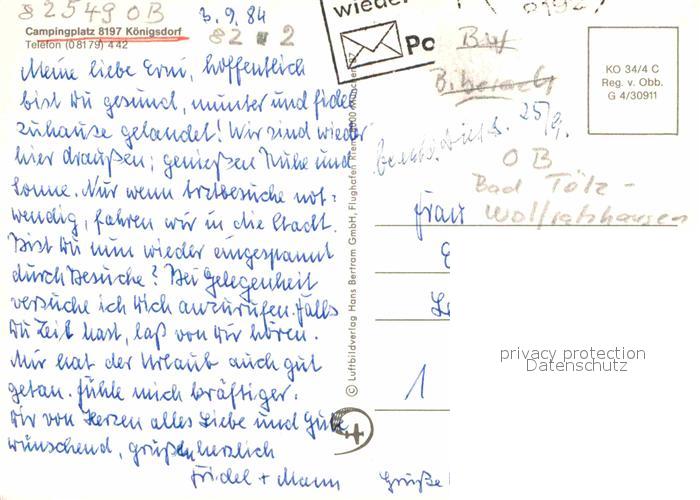 82549 OB
3.9.84
Campingplatz 8197 Königsdorf
Telefon (0 81 79) 4 42
82 2
Meine liebe Erni, hoffentlich
bist Du gesund, munter und fidel
zuhause gelandet! Wir sind wieder
hier draußen; genießen Ruhe und
Sonne. Nur wenn Arztbesuche not-
wendig, fahren wir in die Stadt.
Bist Du nun wieder eingespannt
durch Besuche? Bei Gelegenheit
versuche ich Dich anzurufen. Falls
Du Zeit hast, laß von Dir hören.
Mir hat der Urlaub auch gut
getan. Fühle mich kräftiger.
Dir von Herzen alles Liebe und Gute
wünschend, grüßen herzlich
Fridel + Mann
Grüße
© Luftbildverlag Hans Bertram GmbH, Flughafen Riem, 8000 München 87
wieder
Po
KO 34/4 C
Reg. v. Obb.
G 4/30911
25/9.
OB
Bad Tölz -
Wolfratshausen
Frau
1
privacy protection
Datenschutz